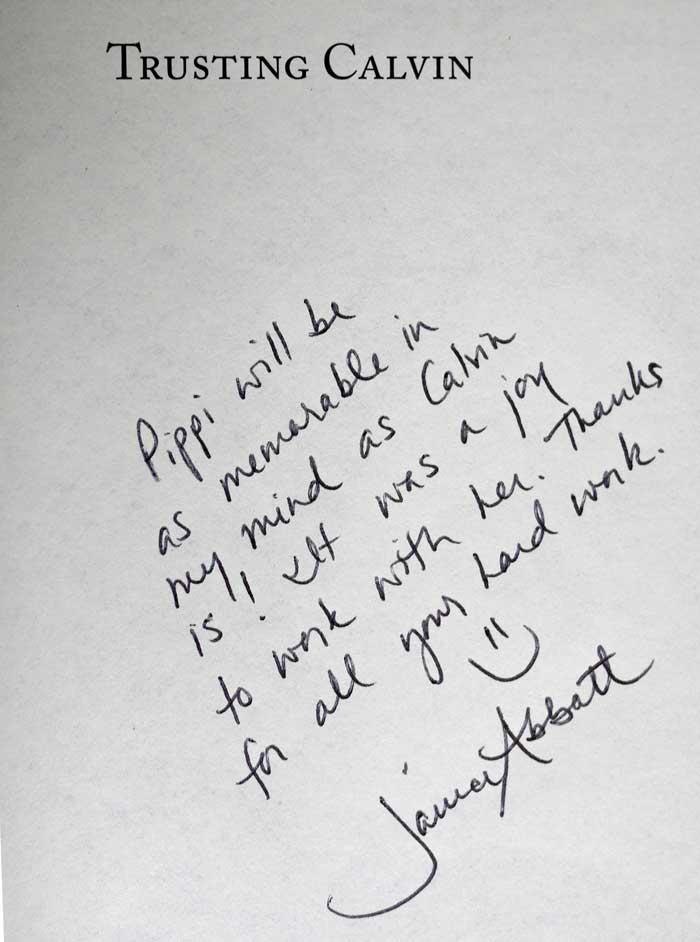 TRUSTING CALVIN
Pippi will be
as memorable in
my mind as Calvin
is! It was a joy
to work with her. Thanks
for all your hard work.
Jamie Abbatt